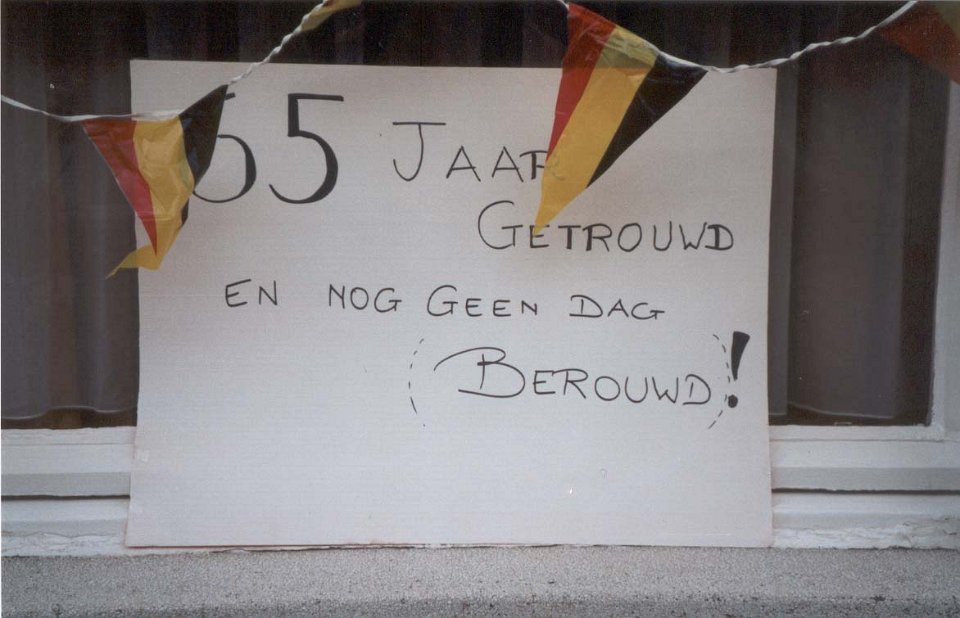 JAAR
GETROUWD
EN NOG GEEN DAG
(BEROUWD)!